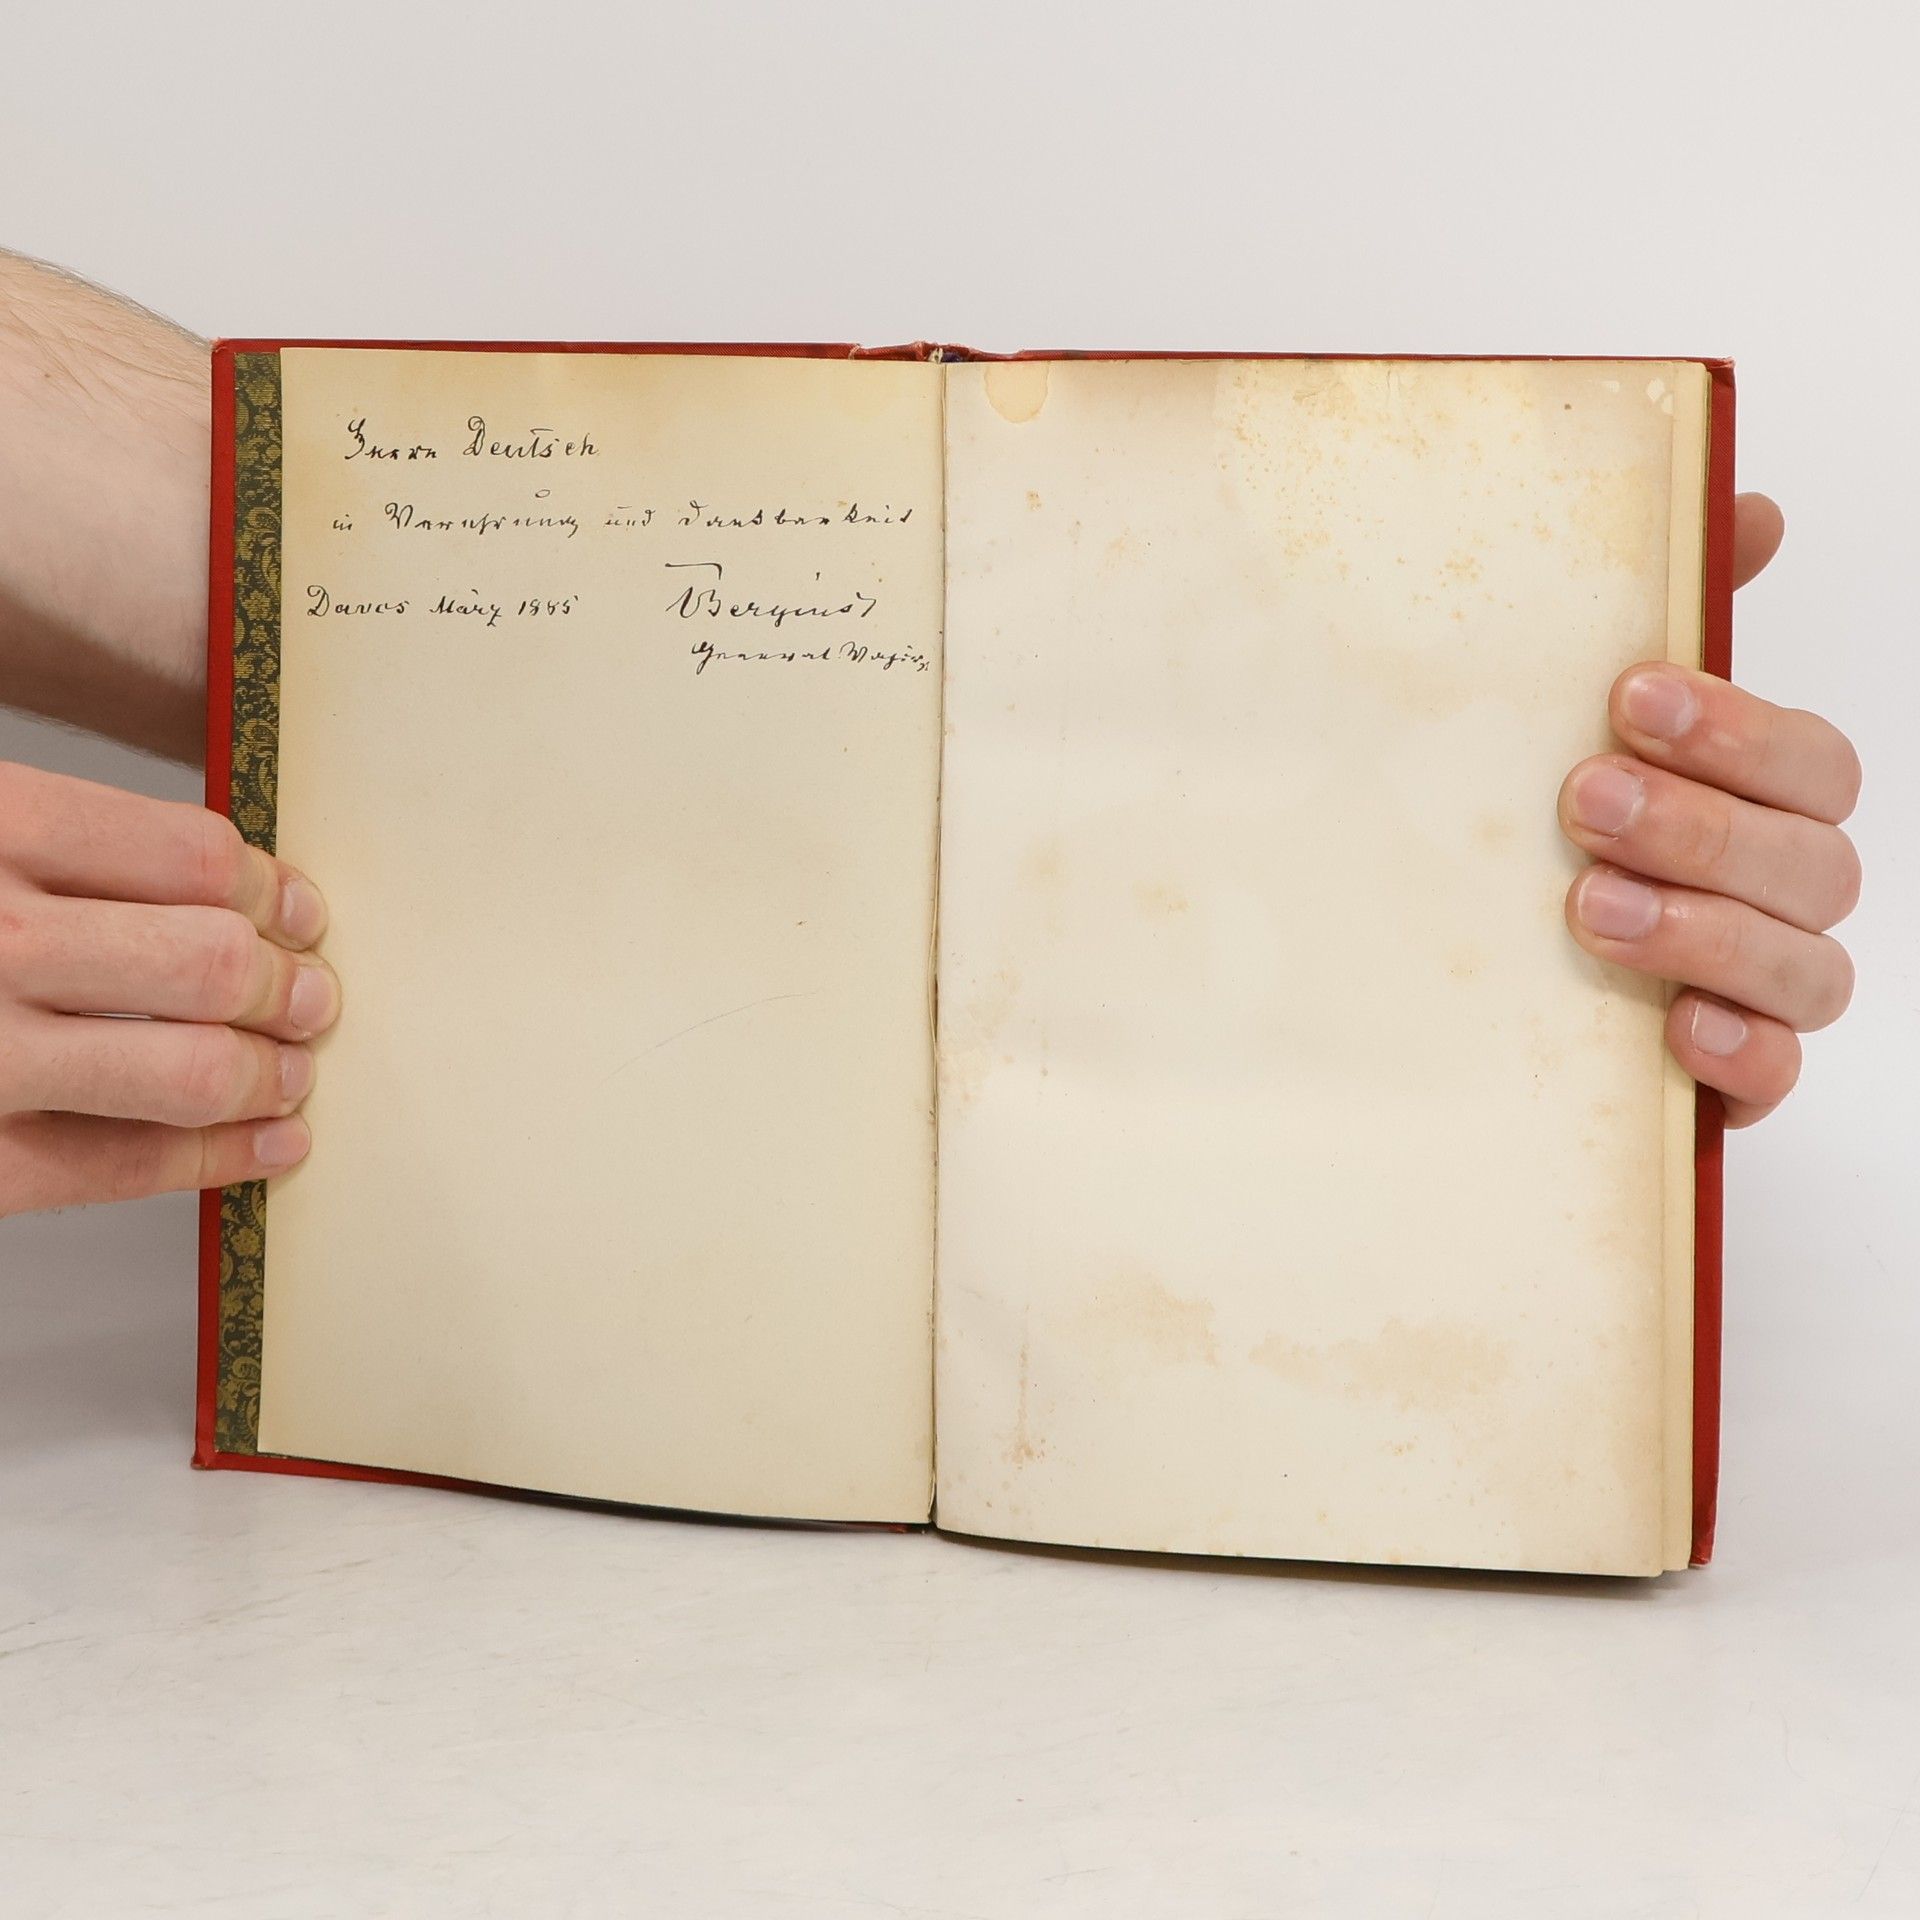 Herrn Deutsch
in Verehrung und Dankbarkeit
Davos März 1885
General Major